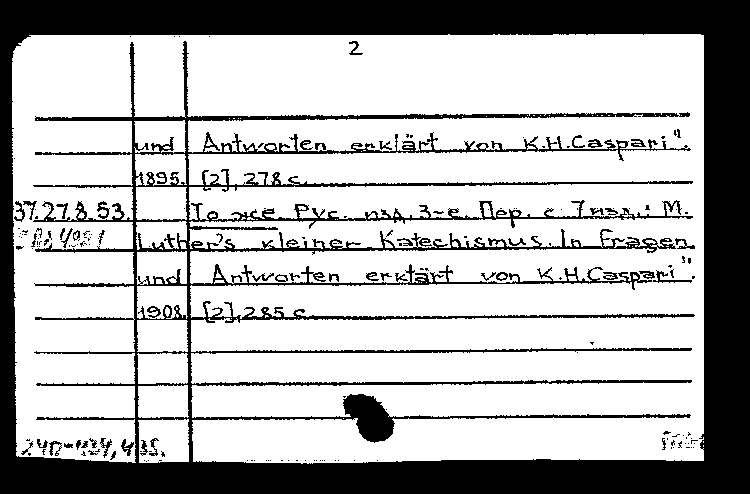 2
und Antworten erklärt von K.H.Caspari".
1895. [2], 278 с.
37.27.8.53. То же. Рус. изд. 3-е. Пер. с 7 изд.: M.
Luther's kleiner Katechismus. In Fragen
und Antworten erklärt von K.H.Caspari".
1908. [2], 285 с.
240-434, 435.